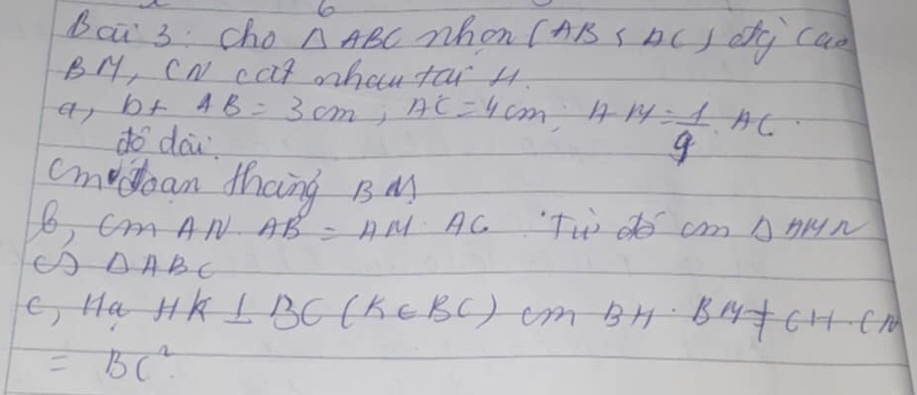 Bài 3: Cho △ ABC nhọn (AB < AC) đg cao
BM, CN cắt nhau tại H.
a, bt AB = 3cm; AC = 4cm; AM = 1/9 . AC.
độ dài.
Cm đoạn thẳng BM
b, Cm AN . AB = AM . AC. Từ đó cm △ AMN
∽ △ ABC
c, Hạ HK ⊥ BC (K ∈ BC) cm BH . BM + CH . CN
= BC².